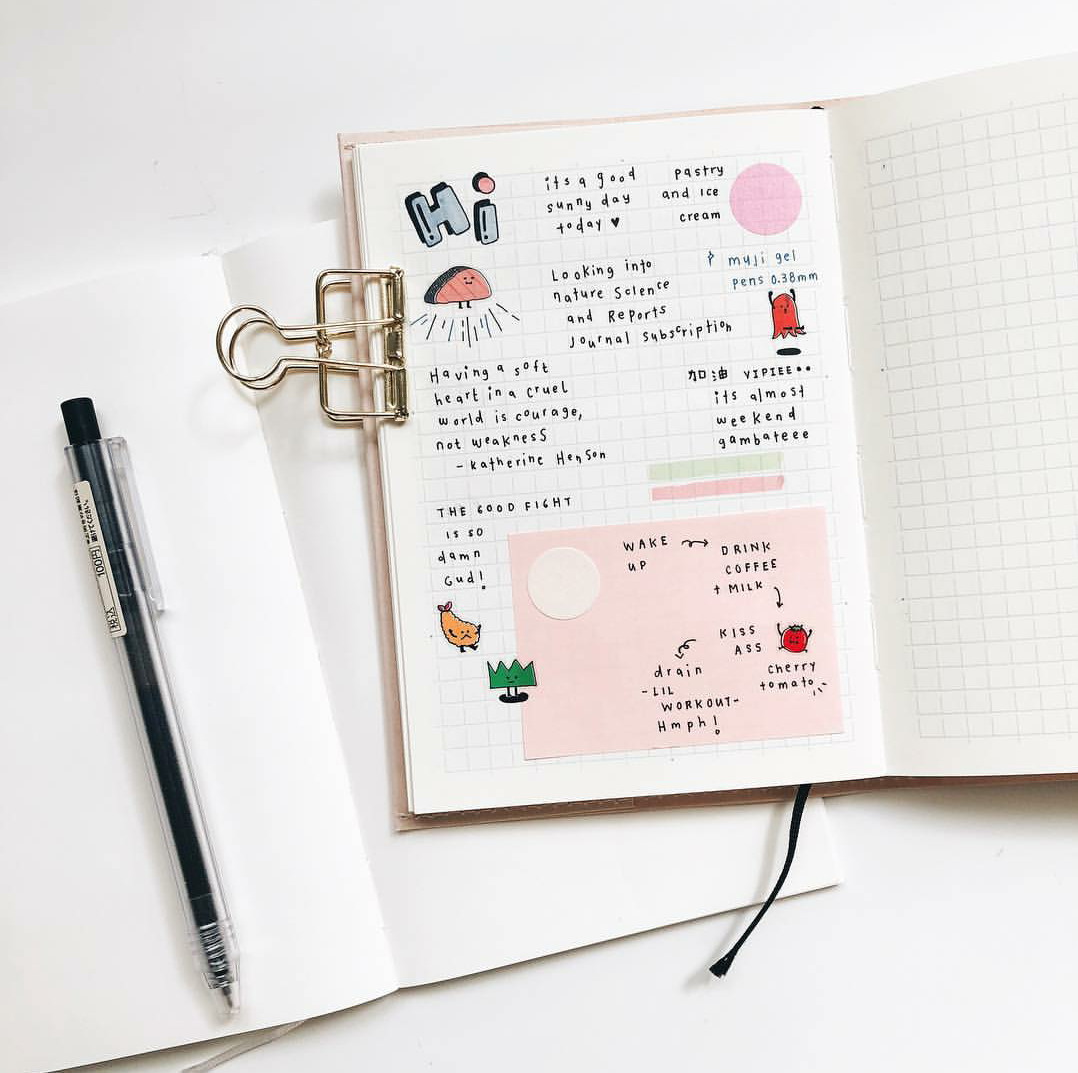 Hi
its a good
sunny day
today ♥
pastry
and ice
cream
muji gel
pens 0.38mm
Looking into
nature Science
and Reports
Journal subscription
Having a soft
heart in a cruel
world is courage,
not weakness
- katherine Henson
加油 YIPIEE••
its almost
weekend
gambateee
THE GOOD FIGHT
is so
damn
Gud!
WAKE
UP
DRINK
COFFEE
+ MILK
KISS
ASS
cherry
tomato
drain
-LIL
WORKOUT-
Hmph!
100円
税込